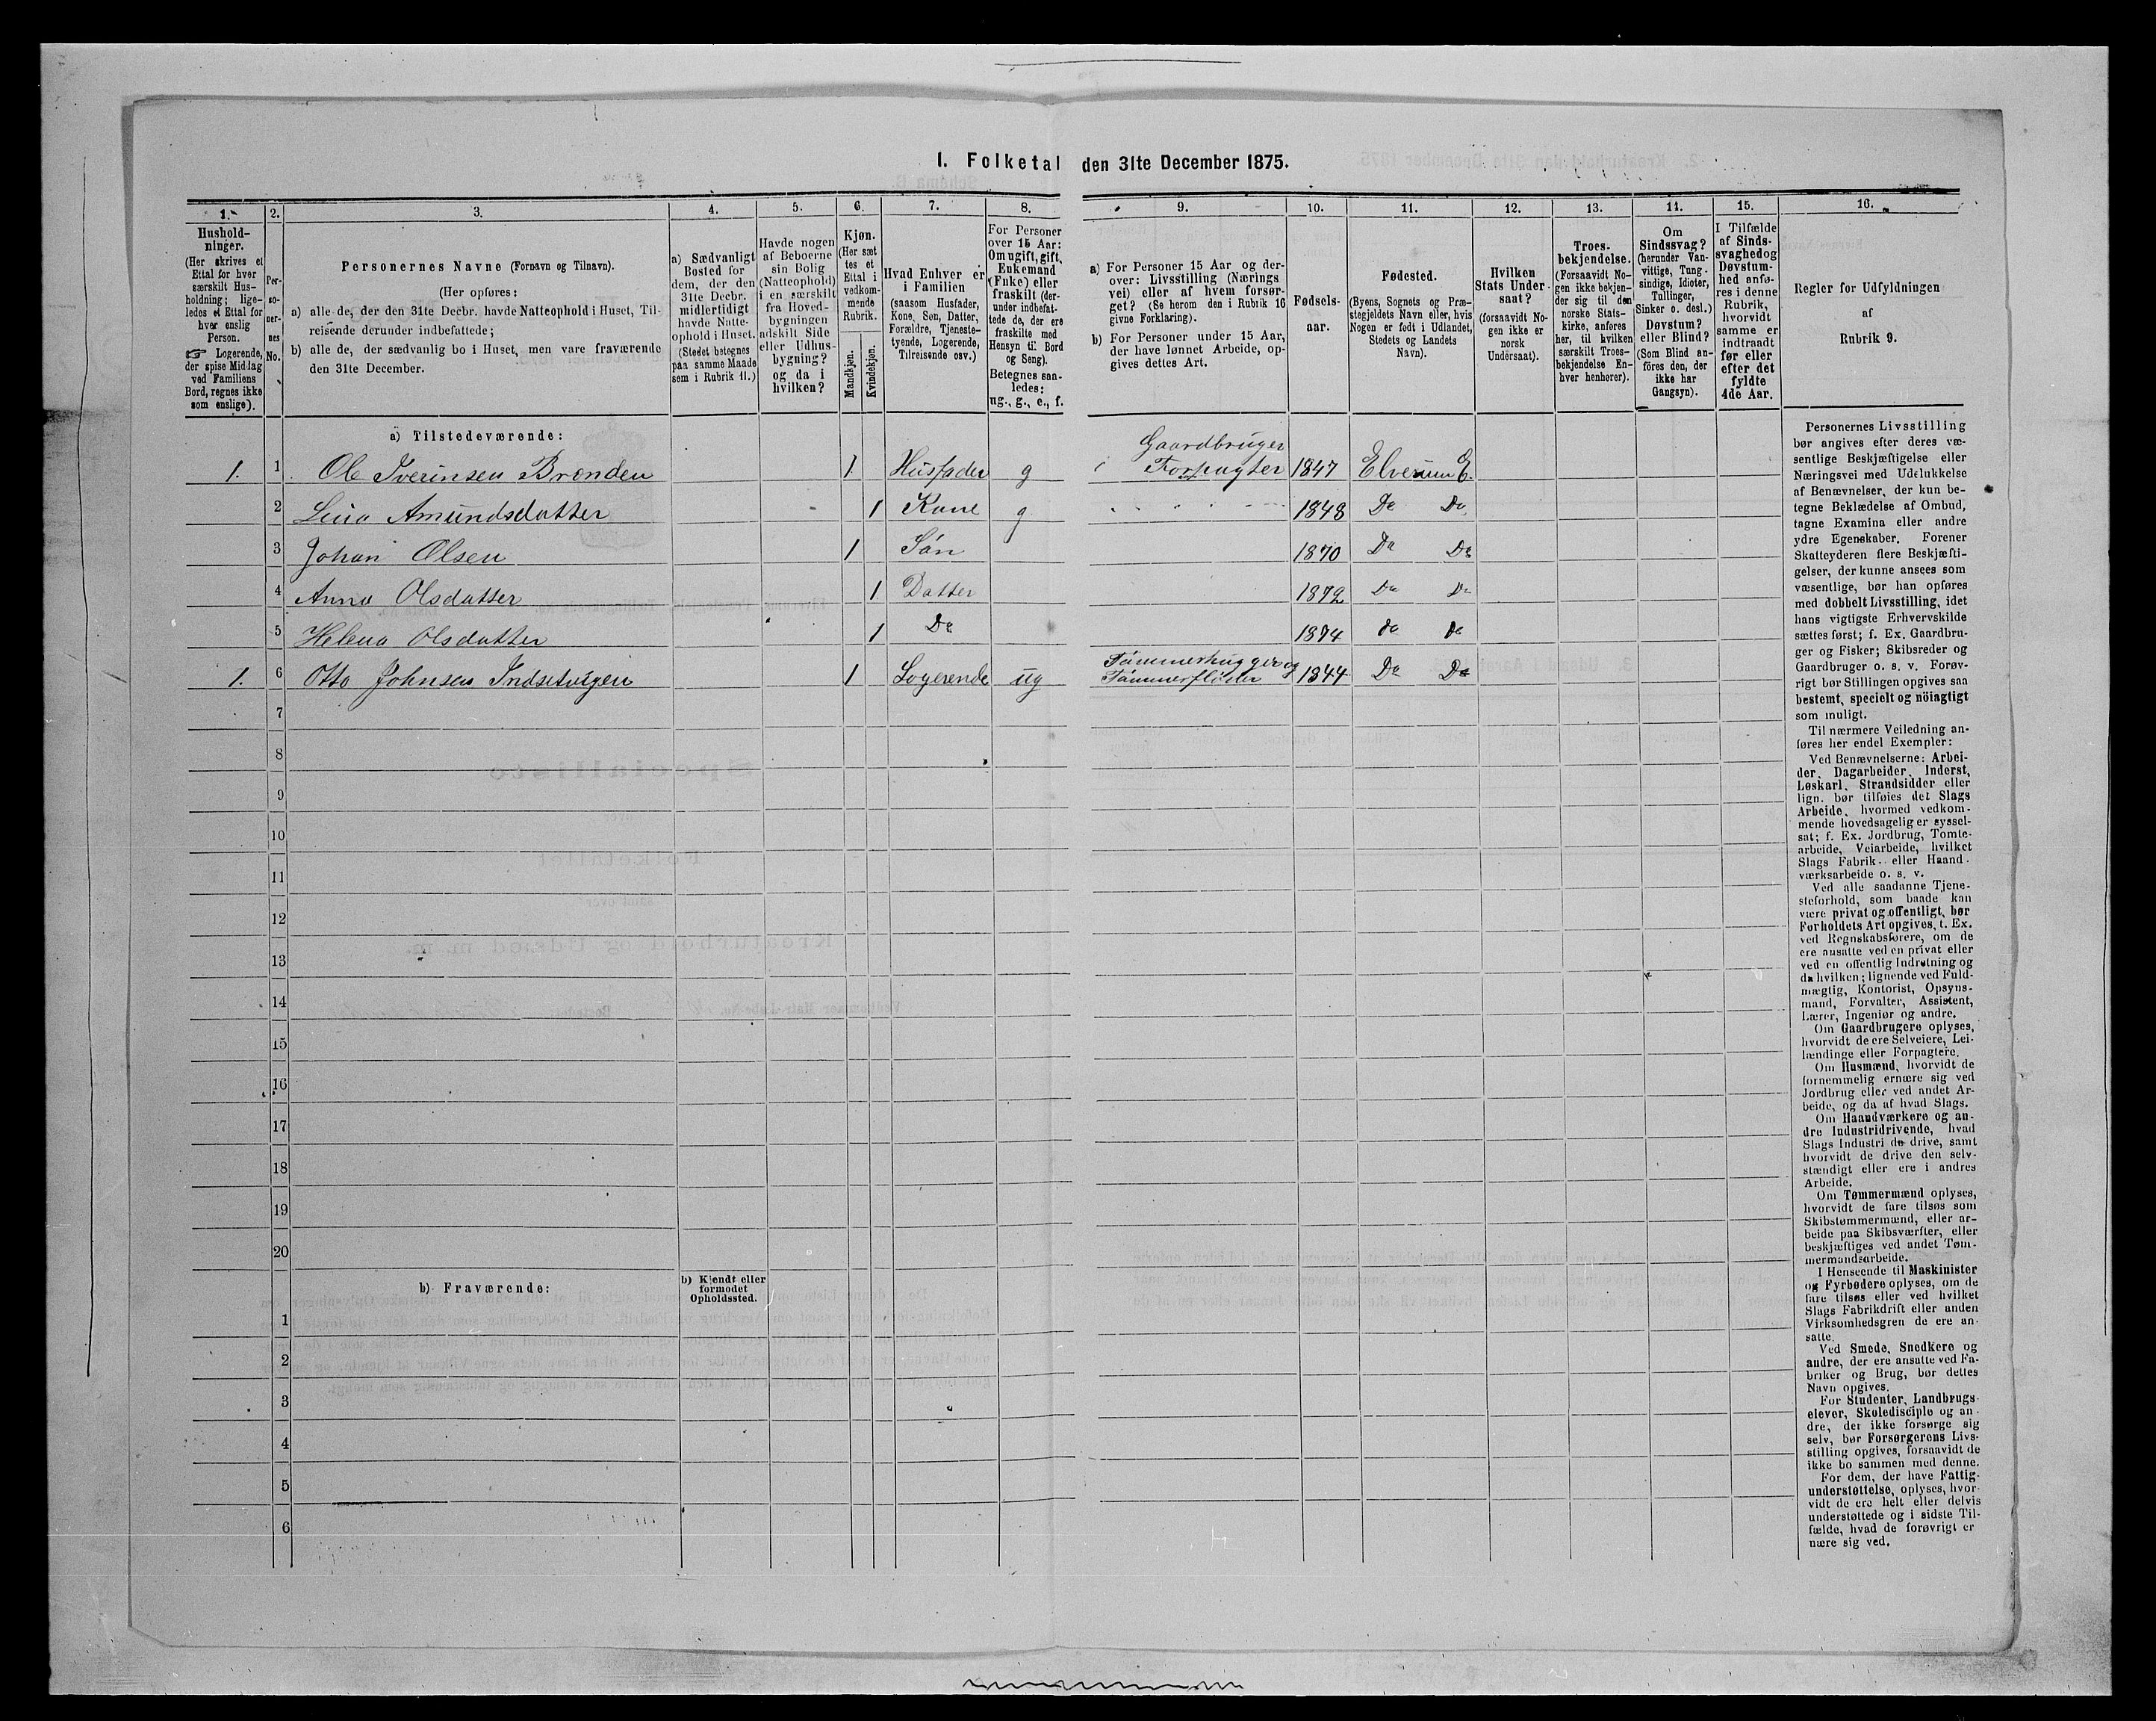 1. Folketal den 31te December 1875.
1.
2.
3.
4.
5.
6.
7.
8.
9.
10.
11.
12.
13.
14.
15.
16.
Hushold-
ninger.
(Her skrives et
Ettal for hver
særskilt Hus-
holdning; lige-
ledes et Ettal for
hver enslig
Person.
☞ Logerende,
der spise Middag
ved Familiens
Bord, regnes ikke
som enslige).
Per-
so-
ner-
nes
No.
Personernes Navne (Fornavn og Tilnavn).
(Her opføres:
a) alle de, der den 31te Decbr. havde Natteophold i Huset, Til-
reisende derunder indbefattede;
b) alle de, der sædvanlig bo i Huset, men vare fraværende
den 31te December.
a) Sædvanligt
Bosted for
dem, der den
31te Decbr.
midlertidigt
havde Natte-
ophold i Huset.
(Stedet betegnes
paa samme Maade
som i Rubrik 11.)
Havde nogen
af Beboerne
sin Bolig
(Natteophold)
i en særskilt
fra Hoved-
bygningen
adskilt Side
eller Udhus-
bygning?
og da i
hvilken?
Kjøn.
(Her sæt
tes et
Ettal i
vedkom-
mende
Rubrik.
Mandkjøn.
Kvindekjøn.
Hvad Enhver er
i Familien
(saasom Husfader,
Kone, Søn, Datter,
Forældre, Tjeneste-
tyende, Logerende,
Tilreisende osv.)
For Personer
over 15 Aar:
Om ugift, gift,
Enkemand
(Enke) eller
fraskilt (der-
under indbefat-
tede de, der ere
fraskilte med
Hensyn til Bord
og Seng).
Betegnes saa-
ledes:
ug., g., e., f.
a) For Personer 15 Aar og der-
over: Livsstilling (Nærings
vei) eller af hvem forsør-
get? (Se herom den i Rubrik 16
givne Forklaring).
b) For Personer under 15 Aar,
der have lønnet Arbeide, op-
gives dettes Art.
Fødsels-
aar.
Fødested.
(Byens, Sognets og Præ-
stegjeldets Navn eller, hvis
Nogen er født i Udlandet,
Stedets og Landets
Navn).
Hvilken
Stats Under-
saat?
(forsaavidt No-
gen ikke er
norsk
Undersaat).
Troes-
bekjendelse.
(Forsaavidt No-
gen ikke bekjen-
der sig til den
norske Stats-
kirke, anføres
her, til hvilken
særskilt Troes-
bekjendelse En-
hver henhører).
Om
Sindssvag?
(herunder Van-
vittige, Tung-
sindige, Idioter,
Tullinger,
Sinker o. desl.)
Døvstum?
eller Blind?
(Som Blind an-
føres den, der
ikke har
Gangsyn).
I Tilfælde
af Sinds-
svaghed og
Døvstum-
hed anfø-
res i denne
Rubrik,
hvorvidt
samme er
indtraadt
før eller
efter det
fyldte
4de Aar.
Regler for Udfyldningen
af
Rubrik 9.
a) Tilstedeværende:
1. 1 Ole Iverinsen Brænden 1. Husfader g Gaardbruger Forpagter 1847 Elverum E.
2 Lina Amundsdatter 1 Kone g 1848 Do Do
3 Johan Olsen 1 Søn 1870 Do Do
4 Anna Olsdatter 1 Datter 1872 Do Do
5 Helena Olsdatter 1 Do 1874 do do
1. 6 Otto Johnsen Indsetvigen 1 Logerende ug Tømmerhugger og Tømmerfløder 1844 Do Do
7
8
9
10
11
12
13
14
15
16
17
18
19
20
b) Fraværende:
b) Kjendt eller
formodet
Opholdssted.
1
2
3
4
5
6
Personernes Livsstilling
bør angives efter deres væ-
sentlige Beskjæftigelse eller
Næringsvei med Udelukkelse
af Benævnelser, der kun be-
tegne Beklædelse af Ombud,
tagne Examina eller andre
ydre Egenskaber. Forener
Skatteyderen flere Beskjæfti-
gelser, der kunne ansees som
væsentlige, bør han opføres
med dobbelt Livsstilling, idet
hans vigtigste Erhvervskilde
sættes først; f. Ex. Gaardbru-
ger og Fisker; Skibsreder og
Gaardbruger o. s. v. Forøv-
rigt bør Stillingen opgives saa
bestemt, specielt og nöiagtigt
som muligt.
Til nærmere Veiledning an-
føres her endel Exempler:
Ved Benævnelserne: Arbei-
der, Dagarbeider, Inderst,
Løskarl, Strandsidder eller
lign. bør tilføies det Slags
Arbeide, hvormed vedkom-
mende hovedsagelig er syssel-
sat; f. Ex. Jordbrug, Tomte-
arbeide, Veiarbeide, hvilket
Slags Fabrik- eller Haand-
værksarbeide o. s. v.
Ved alle saadanne Tjene-
steforhold, som baade kan
være privat og offentligt, bør
Forholdets Art opgives, f. Ex.
ved Regnskabsførere, om de
ere ansatte ved en privat eller
ved en offentlig Indretning og
da hvilken; lignende ved Fuld-
mægtig, Kontorist, Opsyns-
mand, Forvalter, Assistent,
Lærer, Ingeniør og andre.
Om Gaardbrugere oplyses,
hvorvidt de ere Selveiere, Lei-
lændinge eller Forpagtere.
Om Husmænd, hvorvidt de
fornemmelig ernære sig ved
Jordbrug eller ved andet Ar-
beide, og da af hvad Slags.
Om Haandværkere og an-
dre Industridrivende, hvad
Slags Industri de drive, samt
hvorvidt de drive den selv-
stændigt eller ere i andres
Arbeide.
Om Tømmermænd oplyses,
hvorvidt de fare tilsøs som
Skibstømmermænd, eller ar-
beide paa Skibsværfter, eller
beskjæftiges ved andet Tøm-
mermandsarbeide.
I Henseende til Maskinister
og Fyrbødere oplyses, om de
fare tilsøs eller ved hvilket
Slags Fabrikdrift eller anden
Virksomhedsgren de ere an-
satte.
Ved Smede, Snedkere og
andre, der ere ansatte ved Fa-
briker og Brug, bør dettes
Navn opgives.
For Studenter, Landbrugs-
elever, Skoledisciple og an-
dre, der ikke forsørge sig
selv, bør Forsørgerens Livs-
stilling opgives, forsaavidt de
ikke bo sammen med denne.
For dem, der have Fattig-
understøttelse, oplyses, hvor-
vidt de ere helt eller delvis
understøttede og i sidste Til-
fælde, hvad de forøvrigt er
nære sig ved.